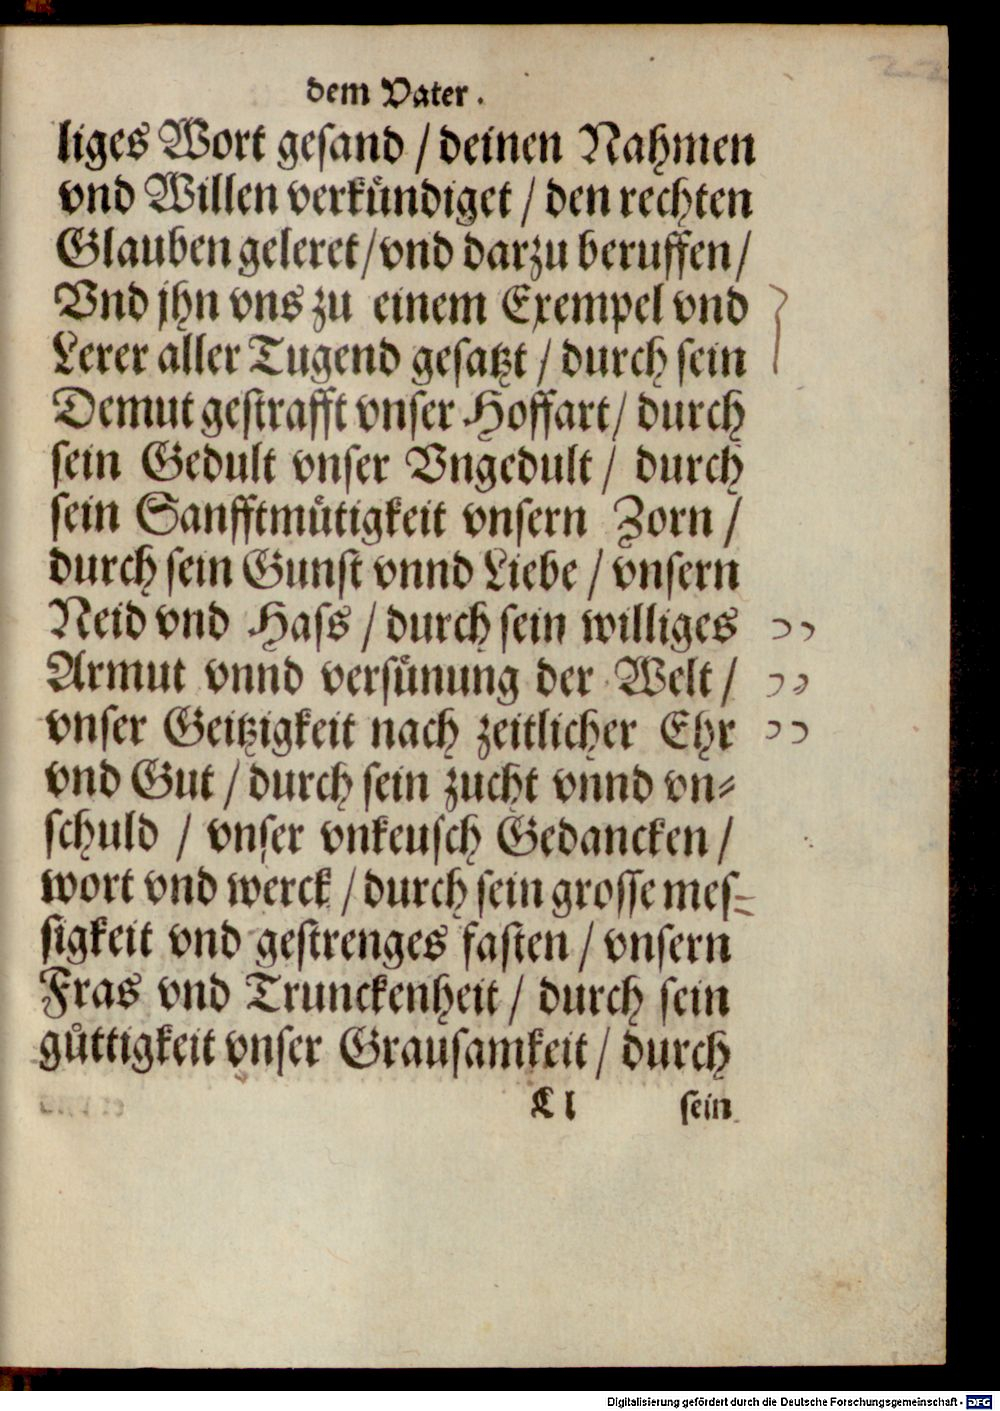 dem Vater.
liges Wort gesand / deinen Nahmen
vnd Willen verkündiget / den rechten
Glauben geleret / vnd darzu beruffen /
Vnd jhn vns zu einem Exempel vnd
Lerer aller Tugend gesatzt / durch sein
Demut gestrafft vnser Hoffart / durch
sein Gedult vnser Vngedult / durch
sein Sanfftmütigkeit vnsern Zorn /
durch sein Gunst vnnd Liebe / vnsern
Neid vnd Hass / durch sein williges
Armut vnnd versünung der Welt /
vnser Geitzigkeit nach zeitlicher Ehr
vnd Gut / durch sein zucht vnnd vn-
schuld / vnser vnkeusch Gedancken /
wort vnd werck / durch sein grosse mes-
sigkeit vnd gestrenges fasten / vnsern
Fras vnd Trunckenheit / durch sein
güttigkeit vnser Grausamkeit / durch
sein
Digitalisierung gefördert durch die Deutsche Forschungsgemeinschaft - DFG